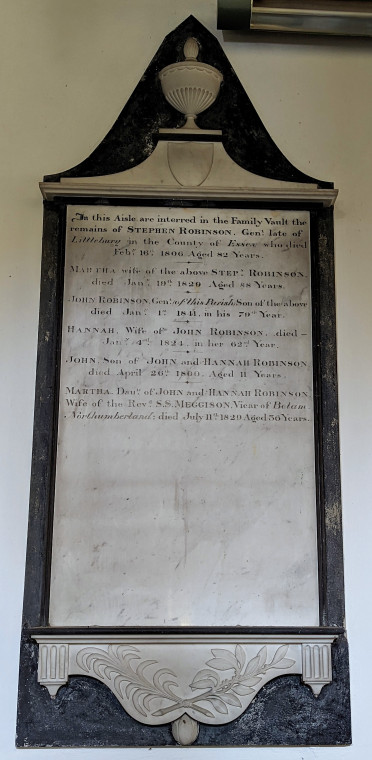 In this Aisle are interred in the Family Vault the
remains of STEPHEN ROBINSON, Genᵗ. late of
Littlebury in the County of Essex who died
Febʸ. 16ᵗʰ. 1806. Aged 82 Years.
MARTHA wife of the above STEPᴺ. ROBINSON,
died Janʸ. 19ᵗʰ 1829 Aged 88 Years.
JOHN ROBINSON, Genᵗ. of this Parish, Son of the above
died Janʸ. 1ˢᵗ 1841, in his 79ᵗʰ Year.
HANNAH, Wife of JOHN ROBINSON, died
Janʸ. 4ᵗʰ 1824, in her 62ⁿᵈ Year.
JOHN, Son of JOHN and HANNAH ROBINSON
died April 26ᵗʰ 1800. Aged 11 Years.
MARTHA, Dauʳ. of JOHN and HANNAH ROBINSON,
Wife of the Revᵈ. S.S. MEGGISON, Vicar of Bolam,
Northumberland; died July 11ᵗʰ 1829 Aged 36 Years.